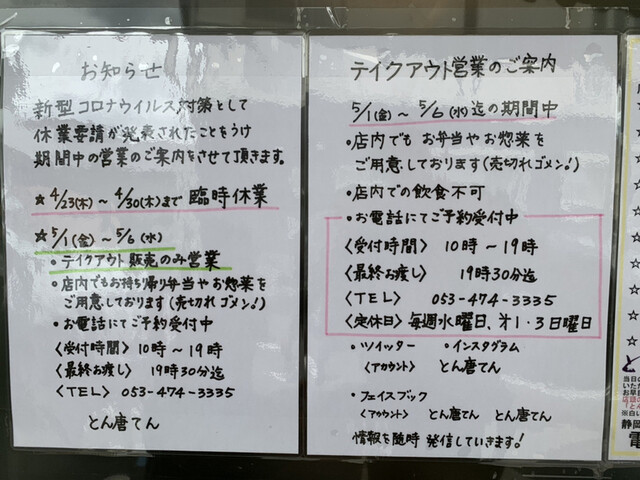 お知らせ
新型コロナウイルス対策として
休業要請が発表されたことをうけ
期間中の営業のご案内をさせて頂きます。
☆4/23(木)～4/30(木)まで 臨時休業
☆5/1(金)～5/6(水)
・テイクアウト販売のみ営業
・店内でもお持ち帰り弁当やお惣菜を
ご用意しております(売切れゴメン!)
・お電話にてご予約受付中
〈受付時間〉10時～19時
〈最終お渡し〉19時30分迄
〈TEL〉053-474-3335
とん唐てん
テイクアウト営業のご案内
5/1(金)～5/6(水)迄の期間中
・店内でも お弁当やお惣菜を
ご用意しております(売切れゴメン!)
・店内での飲食不可
・お電話にてご予約受付中
〈受付時間〉 10時～19時
〈最終お渡し〉 19時30分迄
〈TEL〉 053-474-3335
〈定休日〉毎週水曜日、才1・3日曜日
・ツイッター ・インスタグラム
〈アカウント〉 とん唐てん
・フェイスブック
〈アカウント〉 とん唐てん とん唐てん
情報を随時 発信していきます!
☆
☆
☆
☆
当日の
いただ
お早
※白い
静岡
電